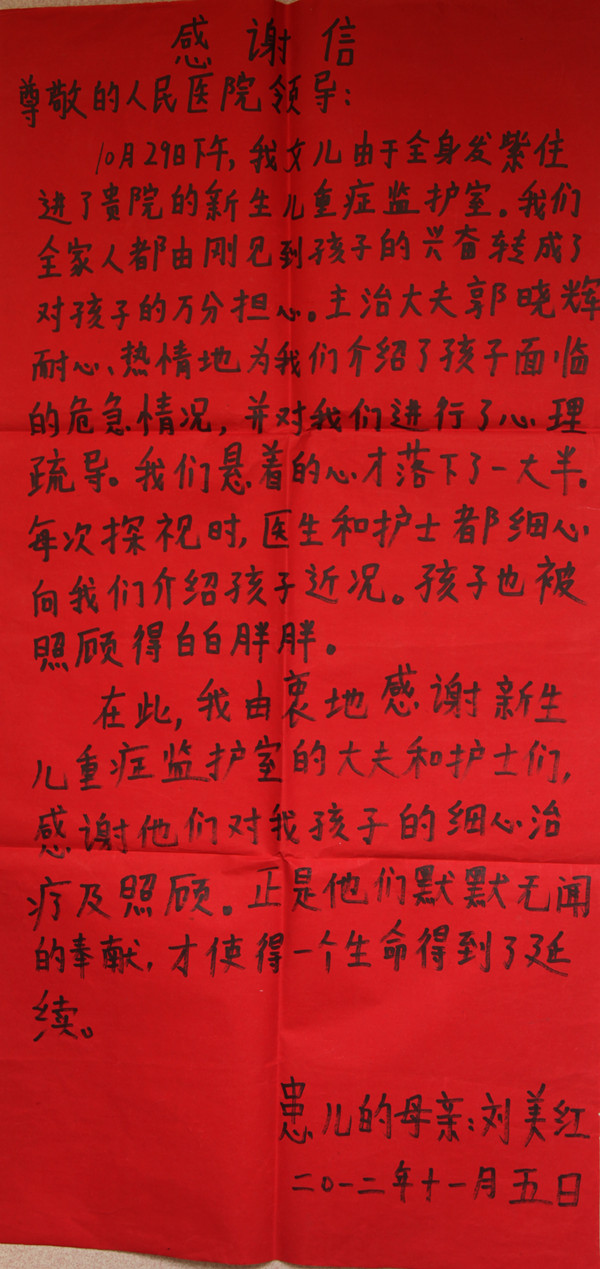 感谢信
尊敬的人民医院领导：
10月29日下午，我女儿由于全身发紫住
进了贵院的新生儿重症监护室。我们
全家人都由刚见到孩子的兴奋转成了
对孩子的万分担心。主治大夫郭晓辉
耐心、热情地为我们介绍了孩子面临
的危急情况，并对我们进行了心理
疏导。我们悬着的心才落下了一大半。
每次探视时，医生和护士都细心
向我们介绍孩子近况。孩子也被
照顾得白白胖胖。
在此，我由衷地感谢新生
儿重症监护室的大夫和护士们，
感谢他们对我孩子的细心治
疗及照顾。正是他们默默无闻
的奉献，才使得一个生命得到了延
续。
患儿的母亲：刘美红
二〇一二年十一月五日